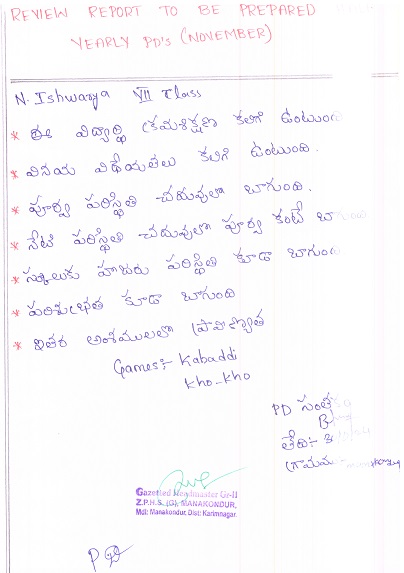 REVIEW REPORT TO BE PREPARED
YEARLY PD's (NOVEMBER)
N. Ishwarya VII Class
* ఈ విద్యార్థి క్రమశిక్షణ కలిగి ఉంటుంది
* వినయ విధేయతలు కలిగి ఉంటుంది.
* పూర్వ పరిస్థితి చదువులో బాగుంది.
* నేటి పరిస్థితి చదువులో పూర్వ కంటే
* స్కూలుకు హాజరు పరిస్థితి కూడా బాగుంది
* పరిశుభ్రత కూడా బాగుంది
* ఇతర అంశములలో ప్రావిణ్యత
Games:- Kabaddi
Kho-Kho
PD
తేది:-
Gazetted Headmaster Gr-II
Z.P.H.S. (G), MANAKONDUR,
Mdl: Manakondur, Dist: Karimnagar.